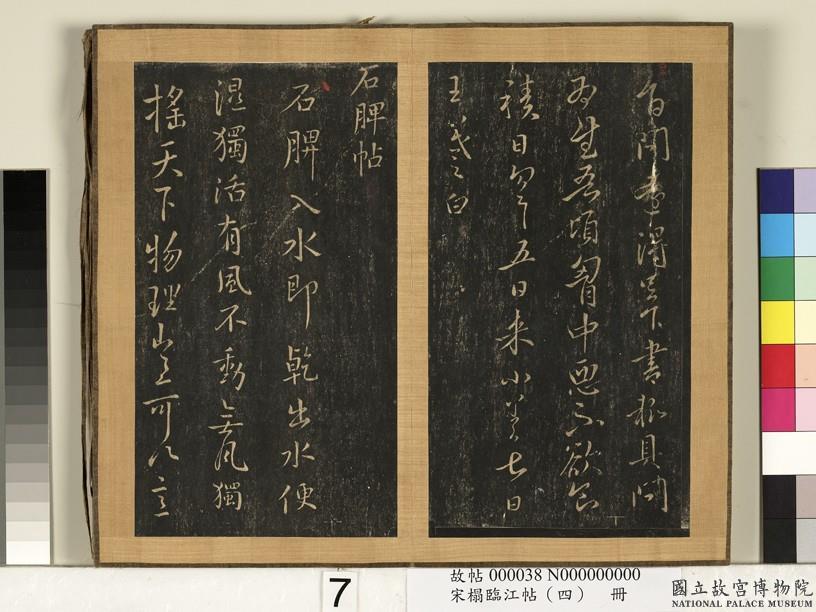 得足下書粗具問
吾頃胸中惡不欲食
積日勿勿五日来小差七日
王羲之白
石脾帖
石脾入水即乾出水便
濕獨活有風不動無風獨
搖天下物理豈可以意
7
故帖 000038 N000000000
宋搨臨江帖(四) 冊
國立故宮博物院
NATIONAL PALACE MUSEUM